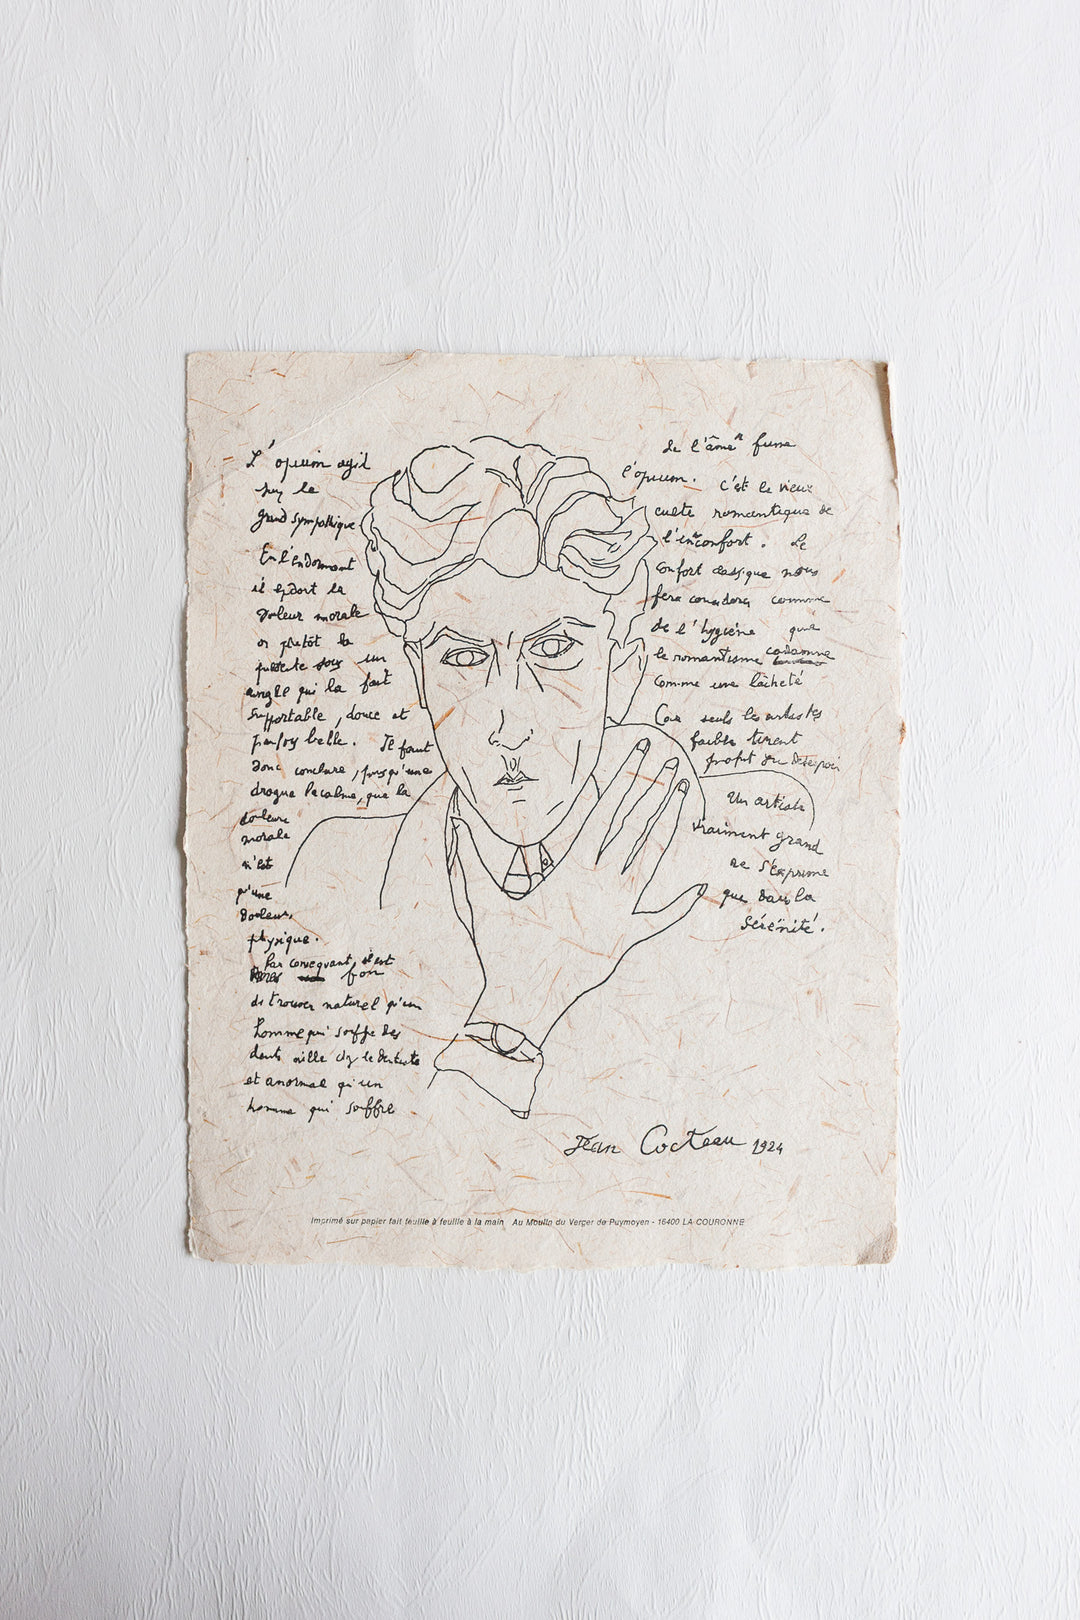 L'opium agit
sur le
grand sympathique
En l'endormant
il endort la
douleur morale
or plutôt la
présente sous un
angle qui la fait
supportable, douce et
parfois belle. Il faut
donc conclure, puisqu'une
drogue la calme, que la
douleur
morale
n'est
qu'une
douleur
physique.
Par conséquant, il est
fou
de trouver naturel qu'un
homme qui souffre des
dents aille chez le dentiste
et anormal qu'un
homme qui souffre
de l'âme fume
l'opium. C'est le vieux
culte romantique de
l'inconfort. Le
confort classique nous
fera considérer comme
de l'hygiène que
le romantisme condamne
comme une lâcheté
Car seuls les artistes
faibles tirent
profit du désespoir
Un artiste
vraiment grand
ne s'exprime
que dans la
Sérénité.
Jean Cocteau 1924
Imprimé sur papier fait feuille à feuille à la main Au Moulin du Verger de Puymoyen - 16400 LA COURONNE